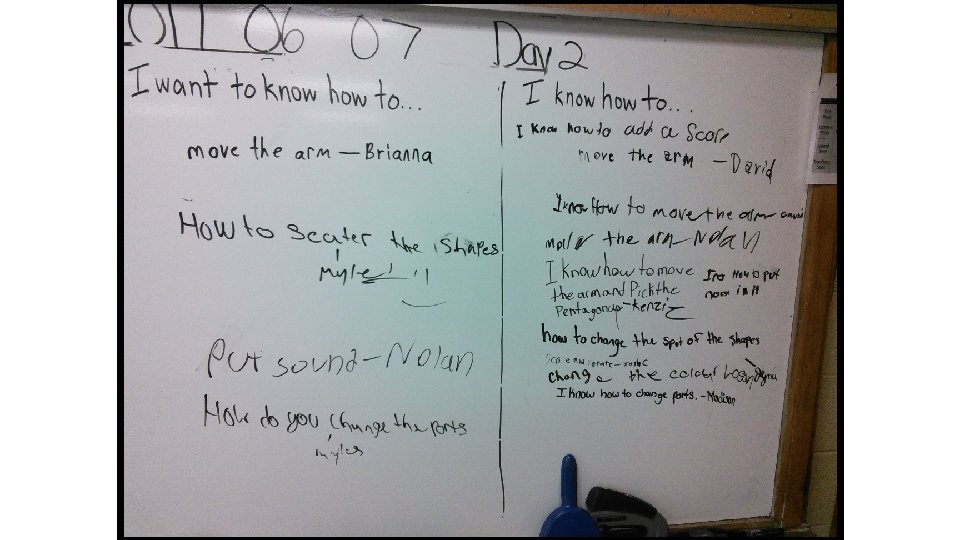 2011 06 07
I want to know how to...
move the arm - Brianna
How to scater the shapes
Myles
Put sound - Nolan
How do you change the ports
myles
Day 2
I know how to...
I know how to add a score
move the arm - David
I know How to move the arm
the arm Nolan
I know how to move
the arm and Pick the
Pentagon up - Kenzie
how to put
how to change the spot of the shapes
change the colour
I know how to change ports. - Madison